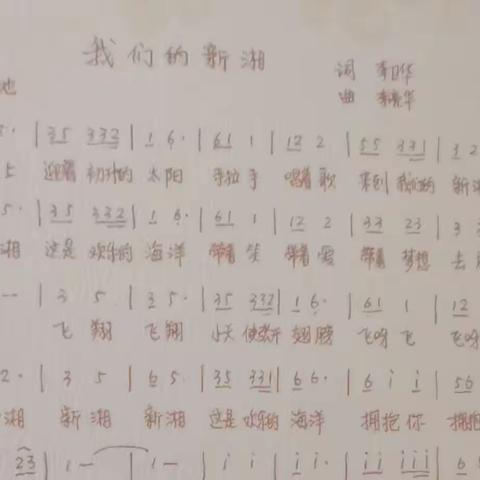 我们的新湘
词 李日华
曲 李亮华
地
5· | 35 332 | 1 6· | 61 1 | 12 2 | 55 331 | 3 2
迎着 初升的 太阳 手拉手 唱着歌 来到 我们的 新湘
5· | 35 332 | 1 6· | 61 1 | 12 2 | 33 23 | 3
湘 这是 欢乐的 海洋 带着笑 带着爱 带着 梦想 去
— | 3 5 | 3 5· | 35 332 | 1 6· | 61 1 | 12
飞翔 飞翔 小天使张开 翅膀 飞呀飞 飞呀
2· | 3 5 | 6 5· | 35 331 | 6 6· | 6 i i | 56
湘 新湘 新湘 这是 欢乐的 海洋 拥抱你 拥抱
23 | 1 — | 1 — | i i | i i· | ii iii | 6